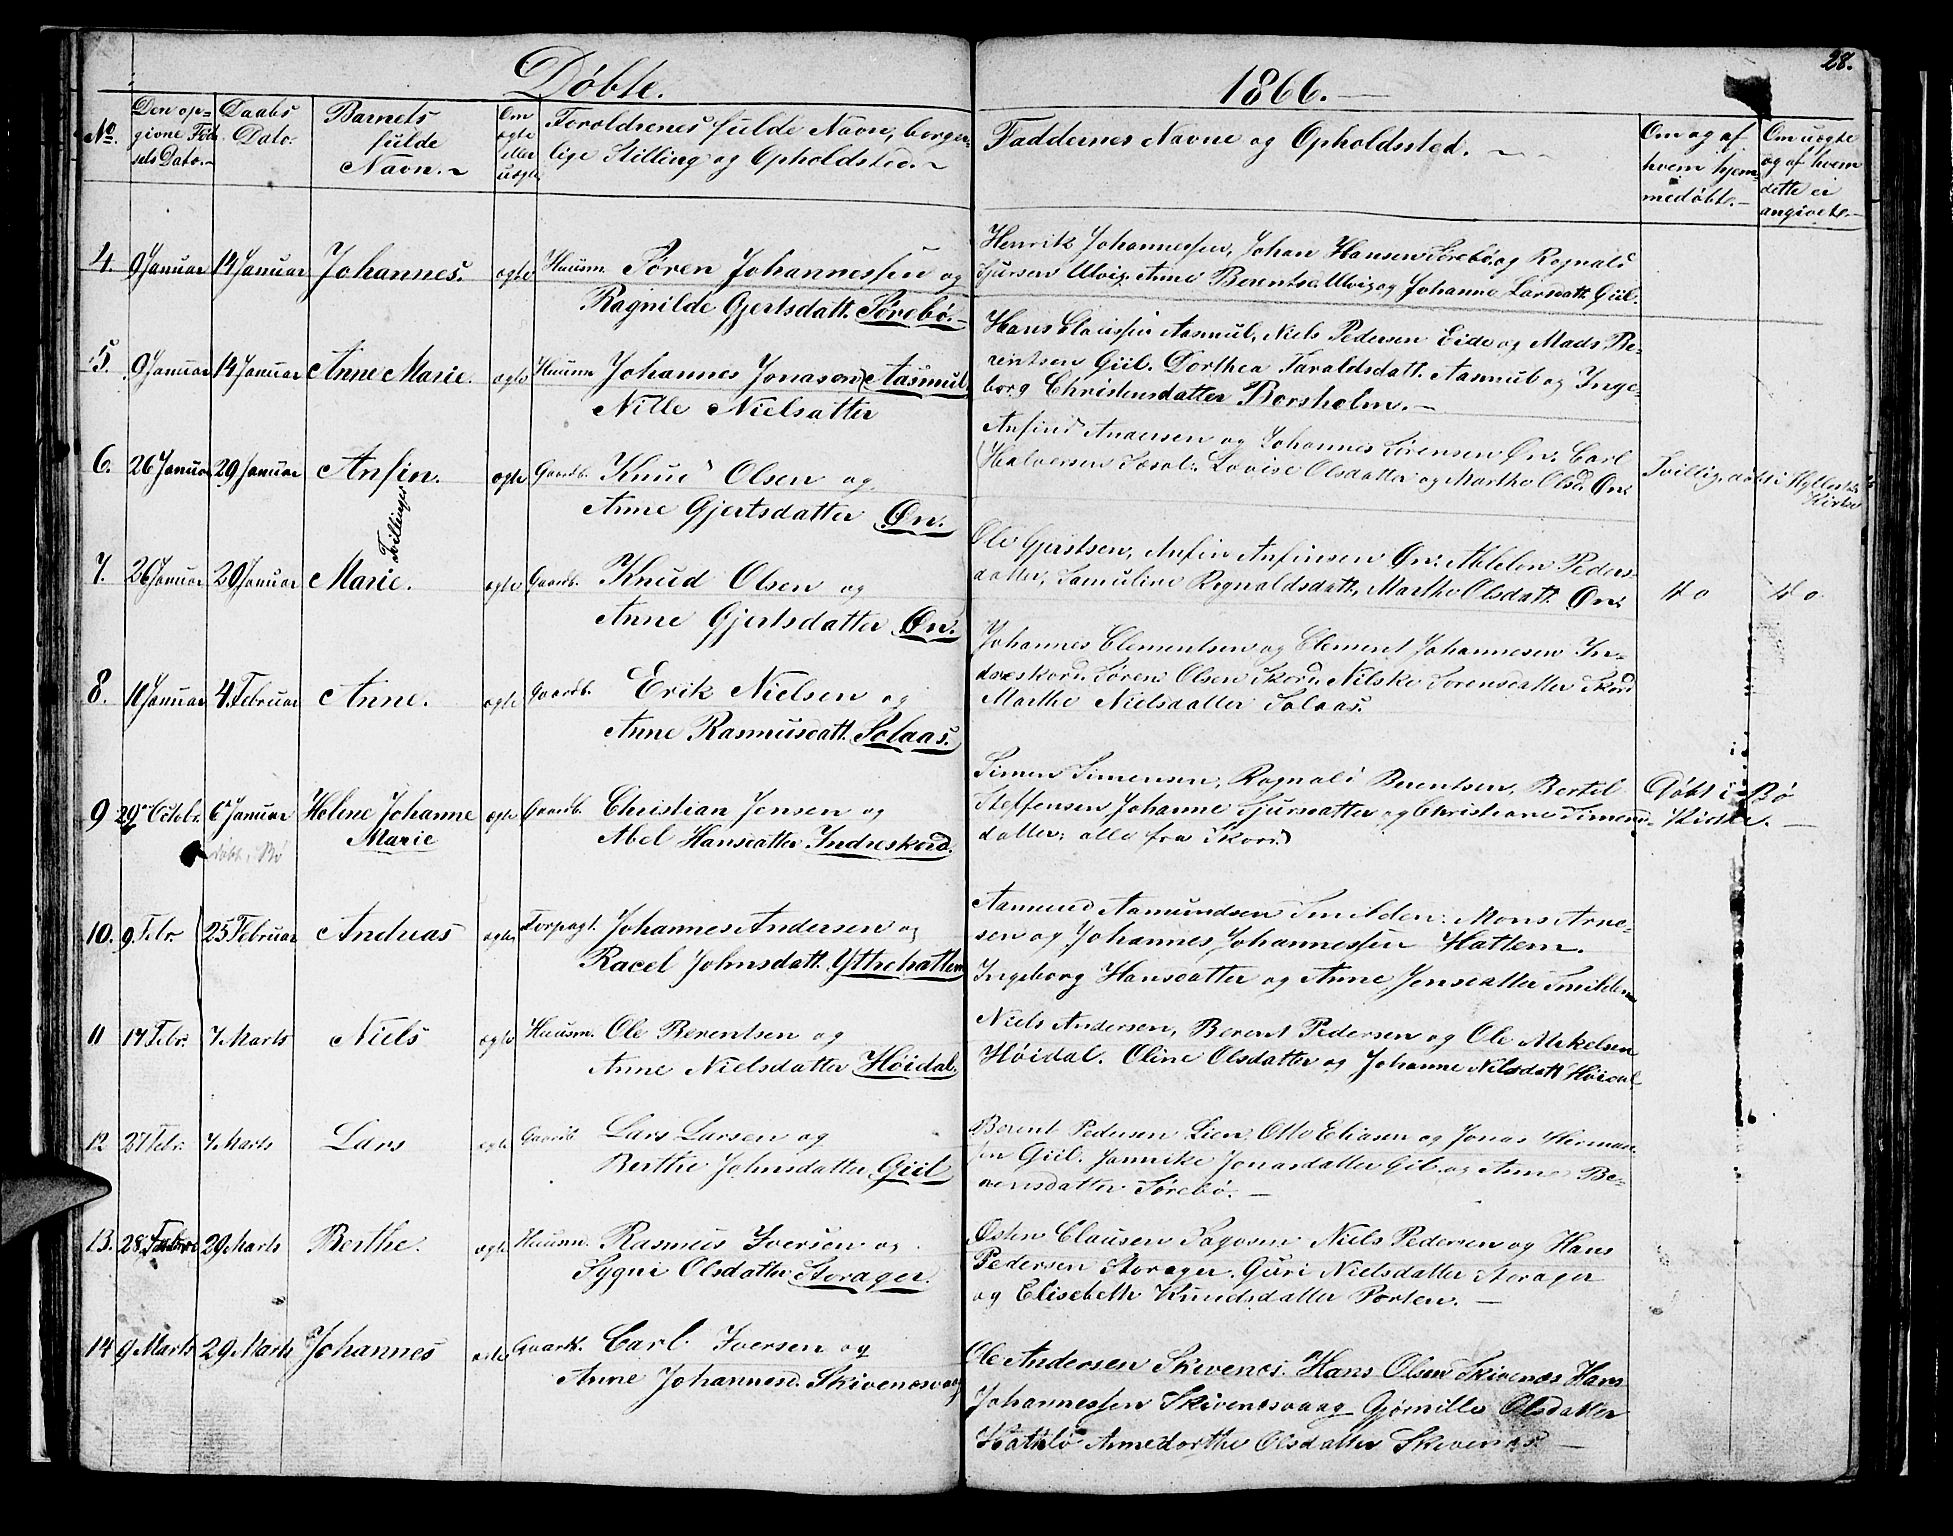 Døbte.
1866.
28.
No.
Den op-
givne Fød-
sels Dato.
Daabs
Dato.
Barnets
fulde
Navn.
Om
ægte
eller
uægte
Foreldrenes fulde Navne, borger-
lige Stilling og Opholdsted.
Faddernes Navne og Opholdssted.
Om og af
hvem hjem-
medøbt.
Om uægte
og af hvem
dette er
angivet.
4. 9 Januar 14 Januar Johannes. ægte Huusm. Søren Johannessen og
Ragnilde Gjertsdatt. Sørebø.
Henrik Johannessen, Johan Hansen Sørebø og Rognald
Sjursen Ulvig, Anne Berentsd. Ulvig og Johanne Larsdatt. Giil.
5. 9 Januar 14 Januar Anne Marie. ægte Huusm Johannes Jonason Aasmul.
Nille Nielsatter
Hans Clausen Aasmul, Niels Pedersen Eide og Mads Be-
rentsen Giil. Dorthea Taraldsdatt. Aasmul og Inge-
borg Christensdatter Borsholm.
6. 26 Januar 29 Januar Anfin. ægte Gaardb. Knud Olsen og
Anne Gjertsdatter Øn.
Anfind Andersen og Johannes Sørensen Øn. Carl
Halversen Lovise Olsdatter og Marthe Olsd. Øn.
Tvilling. døbt i Kirke
Tvillinger
7. 26 Januar 29 Januar Marie. ægte Gaardb. Knud Olsen og
Anne Gjertsdatter Øn.
Ole Gjertsen, Anfin Anfinsen Øn. Abelon Peders-
datter, Samuline Rognaldsdatt, Marthe Olsdatt. Øn.
do do
8. 11 Januar 4. Februar Anne. ægte Gaardb. Erik Nielsen og
Anne Rasmusdatt. Solaas.
Johannes Clementsen og Clement Johannesen In-
dreskord. Søren Olsen Skord. Nilske Sørensdatter Skord
Marthe Nielsdatter Solaas.
9 29 Octobr. 6 Januar Helene Johanne
Marie ægte Gaardb. Christian Jensen og
Abel Hansdatter Indreskord.
døbt i Bø
Simen Simensen, Rognald Berentsen, Bertel
Steffensen, Johanne Sjursdatter og Christiane Simens-
datter, alle fra Skord
Døbt i Bø
Kirke.
10. 9. Febr. 25 Februar Andreas ægte Forpagt. Johannes Andersen og
Racel Johnsdatt. Ytrehatlem
Aamund Aamundsen Smilden. Mons Arne-
sen og Johannes Johannessen Hatlem.
Ingeborg Hansdatter og Anne Jensdatter Smilden
11 17 Febr. 7 Marts Niels ægte Huusm. Ole Berentsen og
Anne Nielsdatter Høidal.
Niels Andersen, Berent Pedersen og Ole Mikelsen
Høidal. Oline Olsdatter og Johanne Nilsdatt Høidal
12 27 Febr. 7 Marts Lars ægte Gaardb Lars Larsen og
Berthe Johnsdatter Giil
Berent Pedersen Lien, Otte Eliasen og Jonas Herman-
sen Giil. Jannike Jonasdatter Gil og Anne Be-
rensdatter Sørebø.
13. 28. Febr. 29 Marts Berthe. ægte Huusm. Rasmus Iversen og
Sygni Olsdatter Storager.
Østen Clausen Niels Pedersen og Hans
Pedersen Storager. Guri Nielsdatter Storager
og Elisebeth Knudsdatter Porten.
14 9 Marts 29 Marts Johannes ægte Carl Iversen og
Anne Johannesd. Skivenæsvaag
Ole Andersen Skivenæs. Hans Olsen Skivenæs Hans
Johannessen Skivenæsvaag Gjømille Olsdatter
Annedorthe Olsdatter Skivenæs.